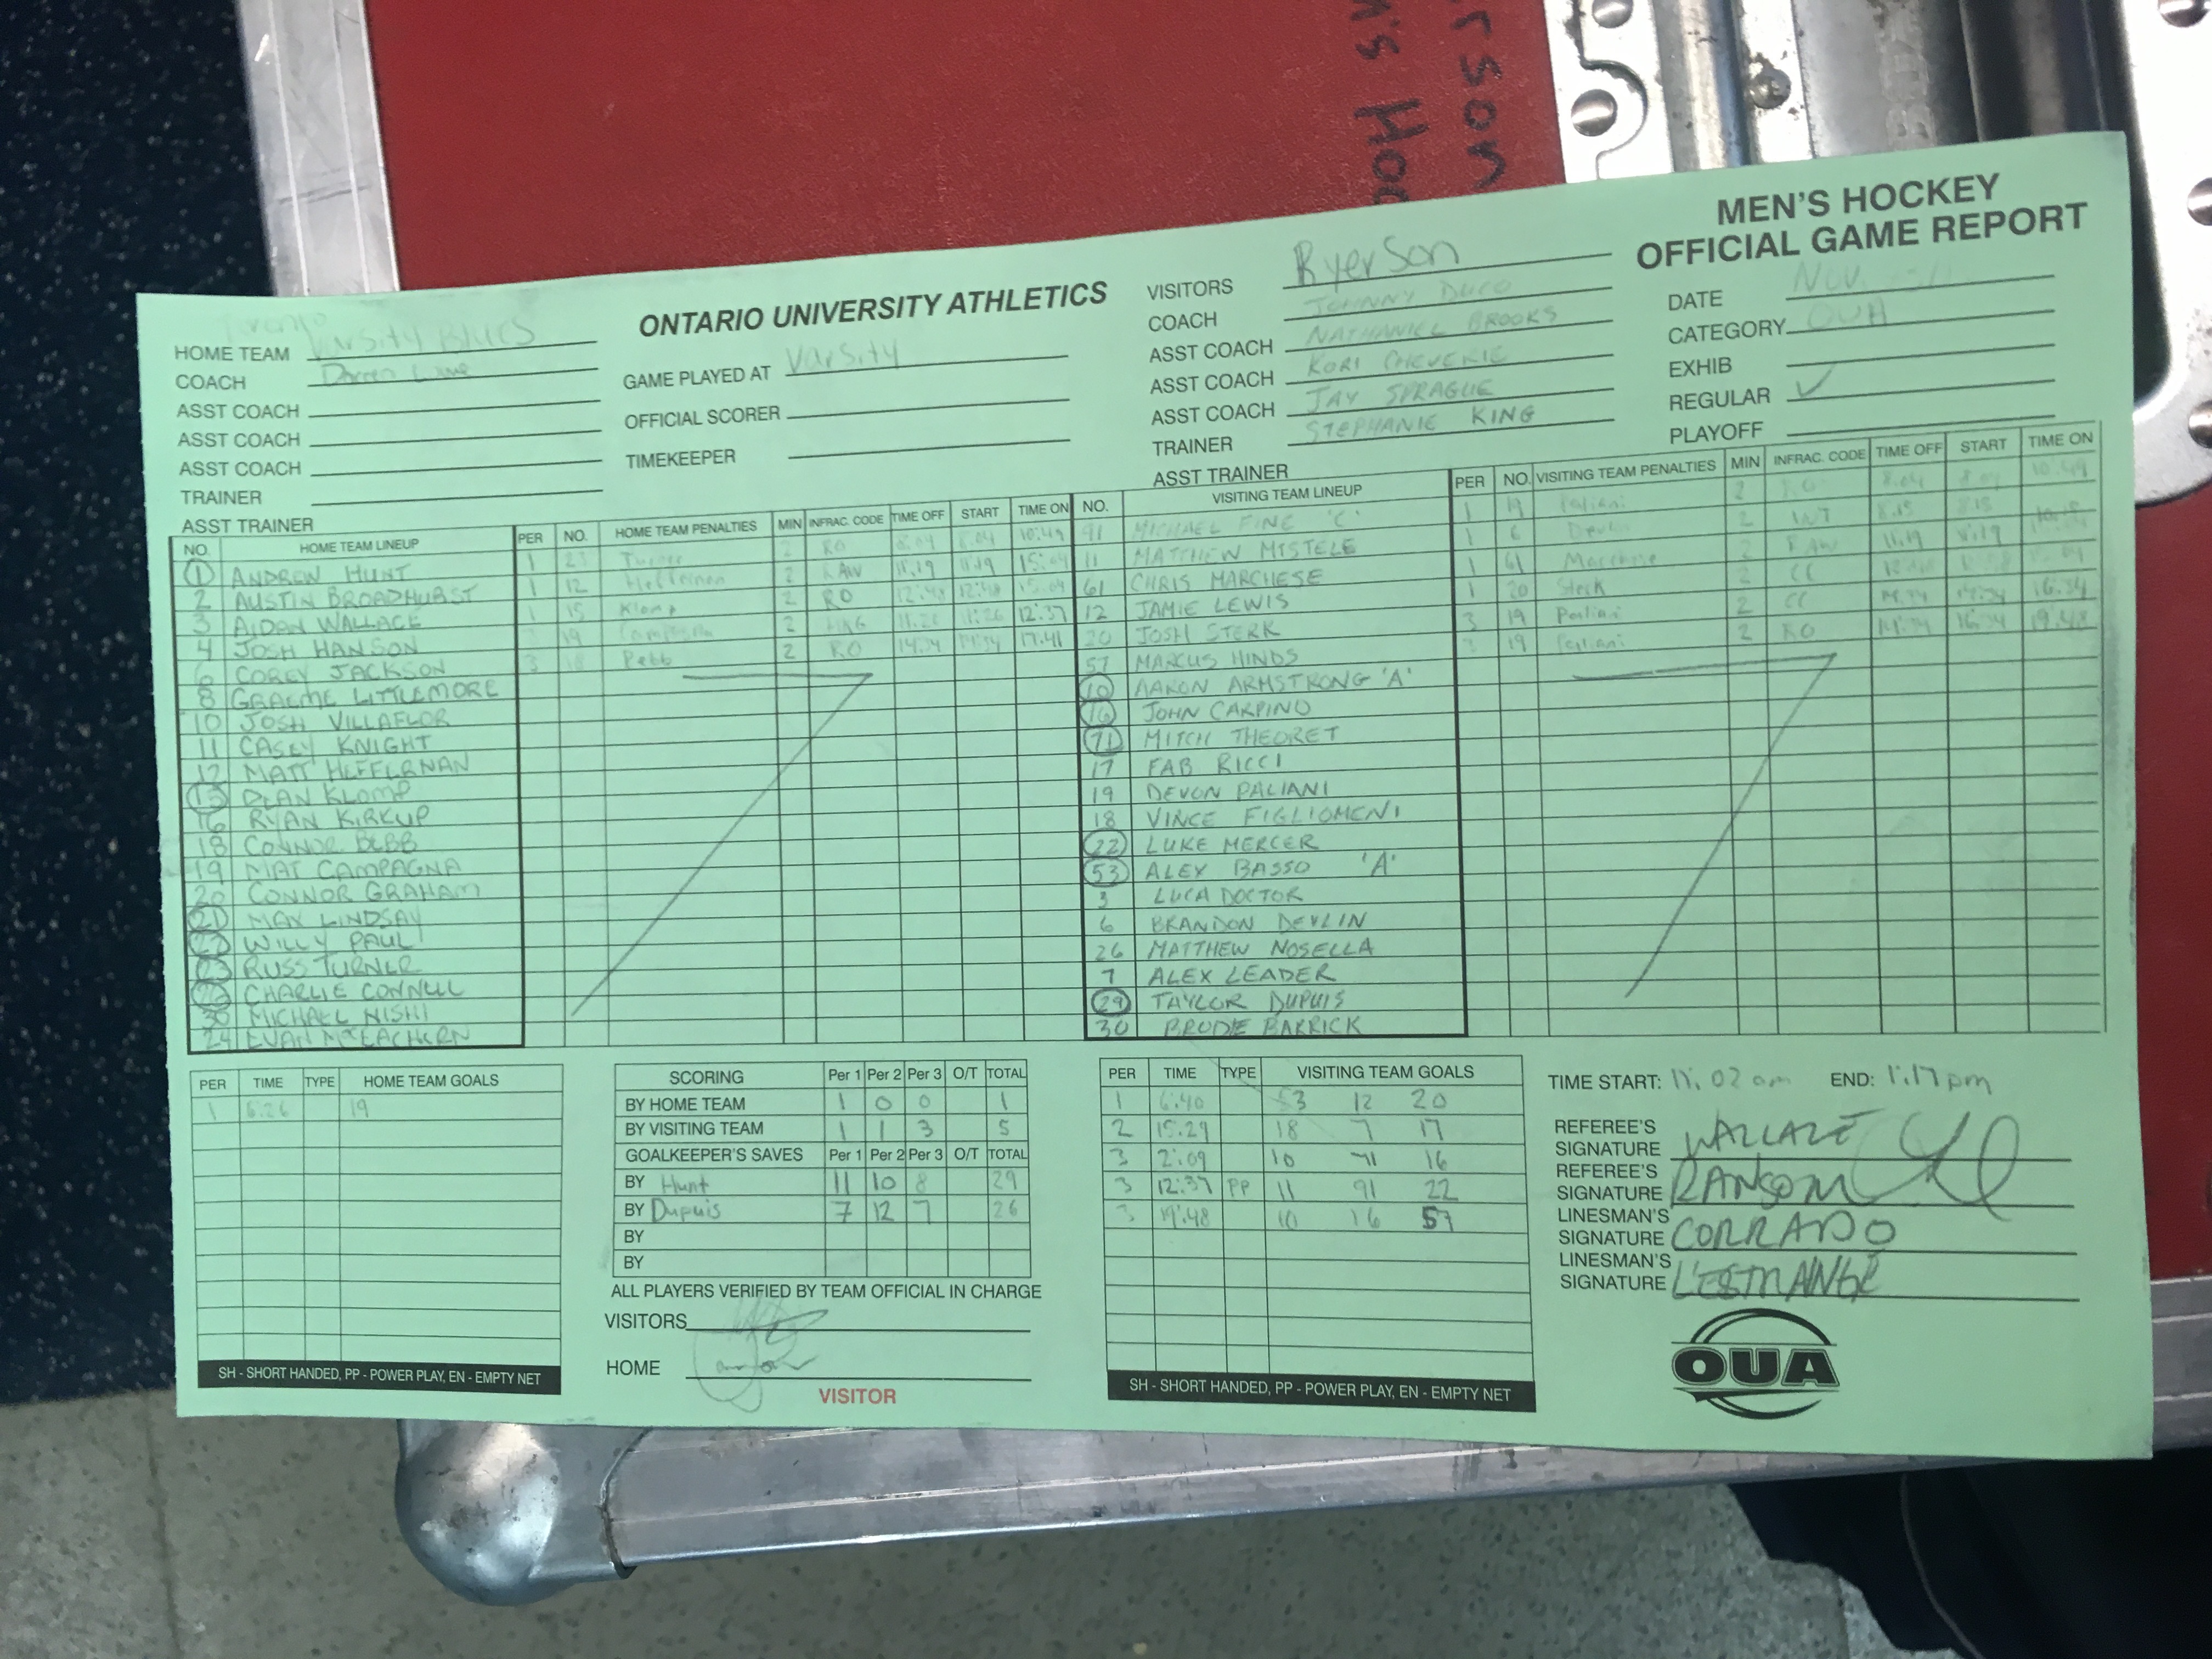 rson
n's Hoc
MEN'S HOCKEY
OFFICIAL GAME REPORT
ONTARIO UNIVERSITY ATHLETICS
HOME TEAM Toronto Varsity Blues
COACH Darren Lowe
ASST COACH
ASST COACH
ASST COACH
TRAINER
ASST TRAINER
GAME PLAYED AT Varsity
OFFICIAL SCORER
TIMEKEEPER
VISITORS Ryerson
COACH JOHNNY DUCO
ASST COACH NATHANIEL BROOKS
ASST COACH KORI CHEVERIE
ASST COACH JAY SPRAGUE
TRAINER STEPHANIE KING
ASST TRAINER
DATE Nov.
CATEGORY OUA
EXHIB
REGULAR ✓
PLAYOFF
NO. HOME TEAM LINEUP
1 ANDREW HUNT
2 AUSTIN BROADHURST
3 AIDAN WALLACE
4 JOSH HANSON
6 COREY JACKSON
8 GRAEME LITTLEMORE
10 JOSH VILLAFLOR
11 CASEY KNIGHT
12 MATT HEFFERNAN
15 DEAN KLOMP
16 RYAN KIRKUP
18 CONNOR BEBB
19 MAT CAMPAGNA
20 CONNOR GRAHAM
21 MAX LINDSAY
22 WILLY PAUL
23 RUSS TURNER
CHARLIE CONNELL
30 MICHAEL NISHI
24 EVAN McEACHERN
PER NO. HOME TEAM PENALTIES MIN INFRAC. CODE TIME OFF START TIME ON
1 23 Turner 2 RO 8:04 8:04 10:49
1 12 Heffernan 2 RAW 11:19 11:19 15:04
1 15 Klomp 2 RO 12:48 12:48 15:04
19 Campagna 2 11:26 11:26 12:37
3 18 Bebb 2 RO 14:34 14:34 17:41
NO. VISITING TEAM LINEUP
91 MICHAEL FINE 'C'
11 MATTHEW MISTELE
61 CHRIS MARCHESE
12 JAMIE LEWIS
20 JOSH STERK
57 MARCUS HINDS
10 AARON ARMSTRONG 'A'
16 JOHN CARPINO
71 MITCH THEORET
17 FAB RICCI
19 DEVON PALIANI
18 VINCE FIGLIOMENI
22 LUKE MERCER
53 ALEX BASSO 'A'
3 LUCA DOCTOR
6 BRANDON DEVLIN
26 MATTHEW NOSELLA
7 ALEX LEADER
29 TAYLOR DUPUIS
30 BRODIE BARRICK
PER NO. VISITING TEAM PENALTIES MIN INFRAC. CODE TIME OFF START TIME ON
1 19 Paliani 2 RO 8:04 8:04 10:49
1 6 Devlin 2 INT 8:15 8:15
1 61 Marchese 2 RAW 11:19 11:19
1 20 Sterk 2 CC
3 19 Paliani 2 CC 14:34 14:34 16:34
19 Paliani 2 RO 14:34 16:34 19:48
PER TIME TYPE HOME TEAM GOALS
1 6:26 19
SH - SHORT HANDED, PP - POWER PLAY, EN - EMPTY NET
SCORING Per 1 Per 2 Per 3 O/T TOTAL
BY HOME TEAM 1 0 0 1
BY VISITING TEAM 1 1 3 5
GOALKEEPER'S SAVES Per 1 Per 2 Per 3 O/T TOTAL
BY Hunt 11 10 8 29
BY Dupuis 7 12 7 26
BY
BY
ALL PLAYERS VERIFIED BY TEAM OFFICIAL IN CHARGE
VISITORS
HOME
VISITOR
PER TIME TYPE VISITING TEAM GOALS
1 6:40 53 12 20
2 15:29 18 7 17
3 2:09 10 71 16
3 12:37 PP 11 91 22
3 19:48 10 16 57
SH - SHORT HANDED, PP - POWER PLAY, EN - EMPTY NET
TIME START: 11:02 am END: 1:17 pm
REFEREE'S
SIGNATURE WALLACE
REFEREE'S
SIGNATURE RANSOM
LINESMAN'S
SIGNATURE CORRADO
LINESMAN'S
SIGNATURE L'ESTRANGE
OUA